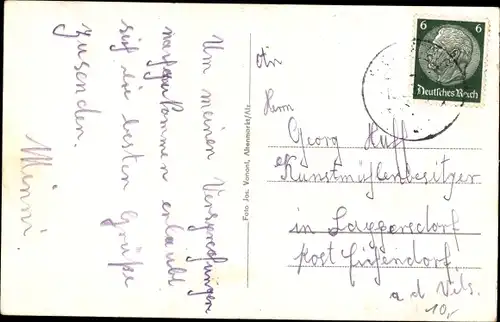 Um meinen Versprechungen
nachzukommen erlaubt
sich die besten Grüße
zusenden.
Minni
Foto Jos. Vonont, Altenmarkt/Alz
6 6
Deutsches Reich
An
Herrn
Georg Huff
Kunstmühlenbesitzer
in Lappersdorf
Post Eichendorf.
a d Vils.
10,-